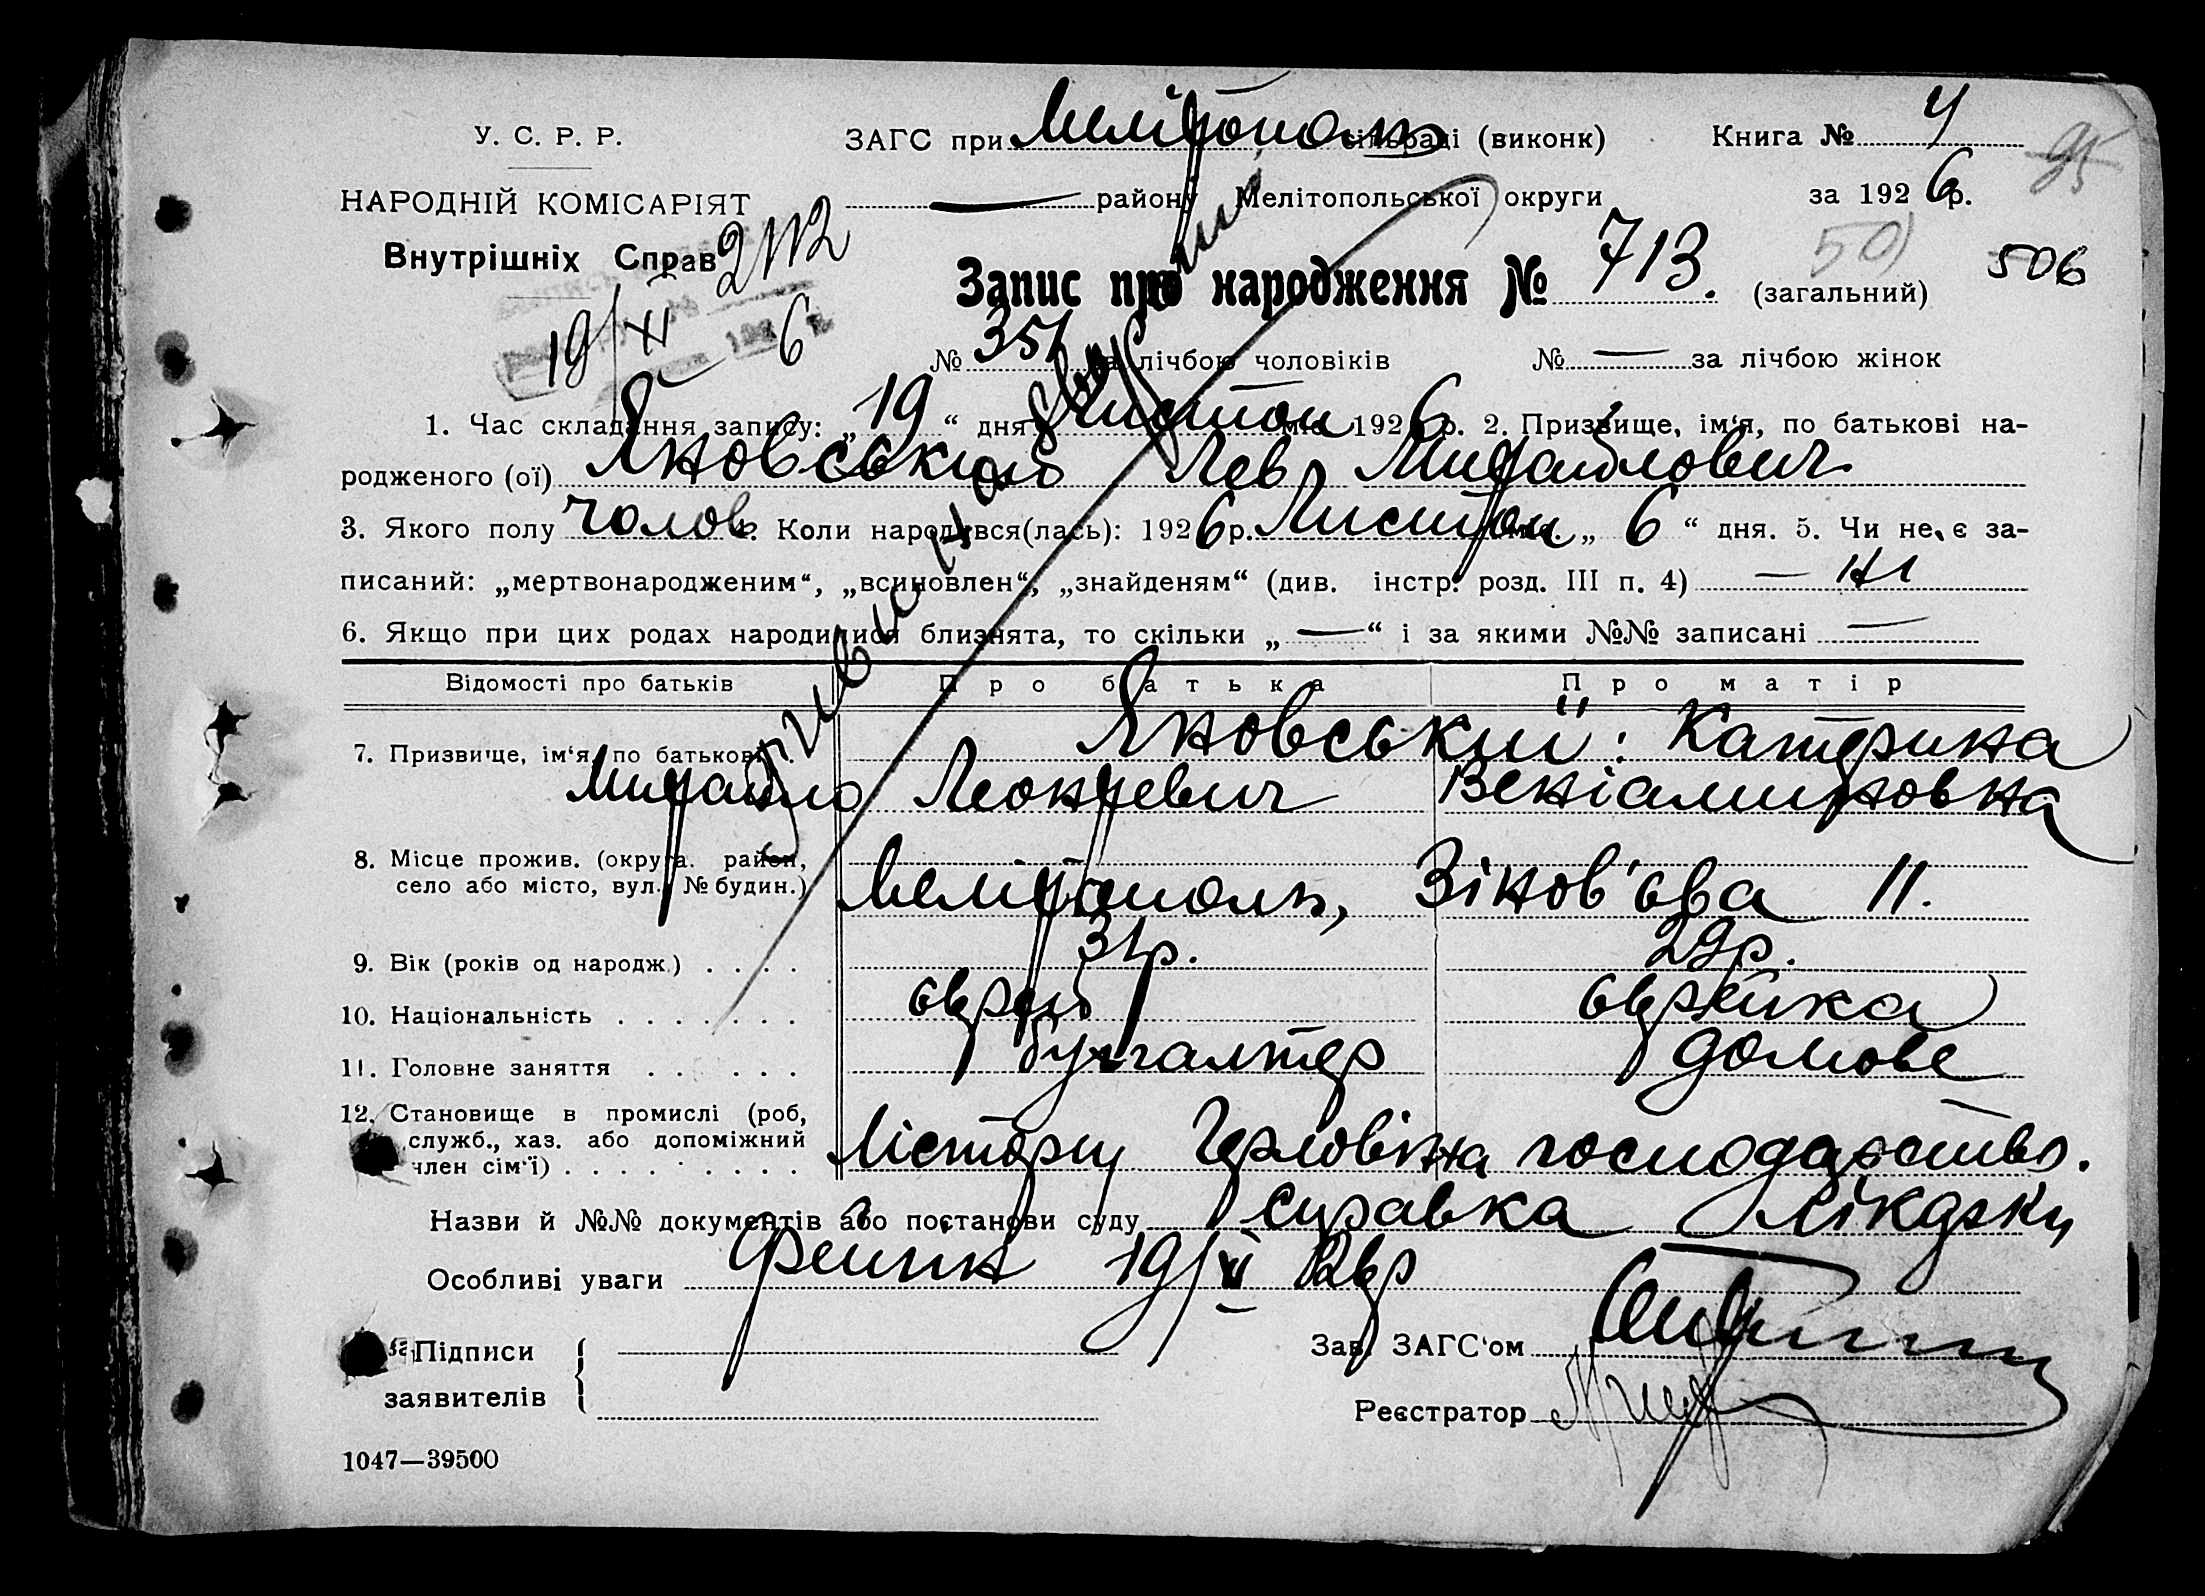 У. С. Р. Р.
ЗАГС при Мелітополь сільраді (виконк)
Книга № 4
95
НАРОДНІЙ КОМІСАРІЯТ
— району Мелітопольської округи
за 1926 р.
Внутрішніх Справ
2112
Запис про народження № 713. (загальний)
50
506
19/XI 6
№ 351 за лічбою чоловіків № — за лічбою жінок
1. Час складання запису: „19“ дня Листоп міс. 1926 р. 2. Призвище, ім‘я, по батькові на-
родженого (ої) Яновський Лев Михайлович
3. Якого полу чолов. 4. Коли народився(лась): 1926 р. Листоп міс. „6“ дня. 5. Чи не є за-
писаний: „мертвонародженим“, „всиновлен“, „знайденям“ (див. інстр. розд. III п. 4) — ні
6. Якщо при цих родах народилися близнята, то скільки „—“ і за якими №№ записані —
Відомості про батьків Про батька Про матір
7. Призвище, ім‘я, по батькові . Яновський: Катерина
Михайло Леонтевич Веніаминовна
8. Місце прожив. (округа. район,
село або місто, вул., № будин.) Мелітополь, Зінов'єва 11.
9. Вік (років од народж.) . . . . 31 р. 29 р.
10. Національність . . . . . . . єврей єврейка
11. Головне заняття . . . . . . бухгалтер домове
12. Становище в промислі (роб,
служб., хаз. або допоміжний
член сім‘ї) . . . . . . . . . господарство.
Назви й №№ документів або постанови суду справка лікарки
Особливі уваги 19/XI 26 р
Підписи
заявителів
Зав. ЗАГС‘ом
Реєстратор
1047—39500